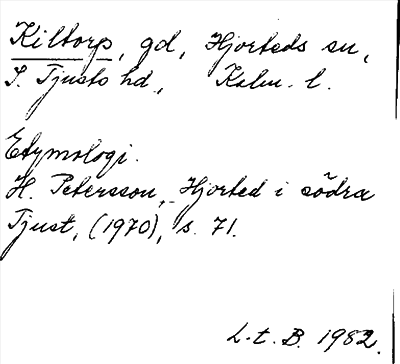 Kiltorp, gd, Hjorteds sn,
S. Tjusts hd., Kalm. l.
Etymologi.
H. Petersson, Hjorted i södra
Tjust, (1970), s. 71.
L.t.B. 1982.